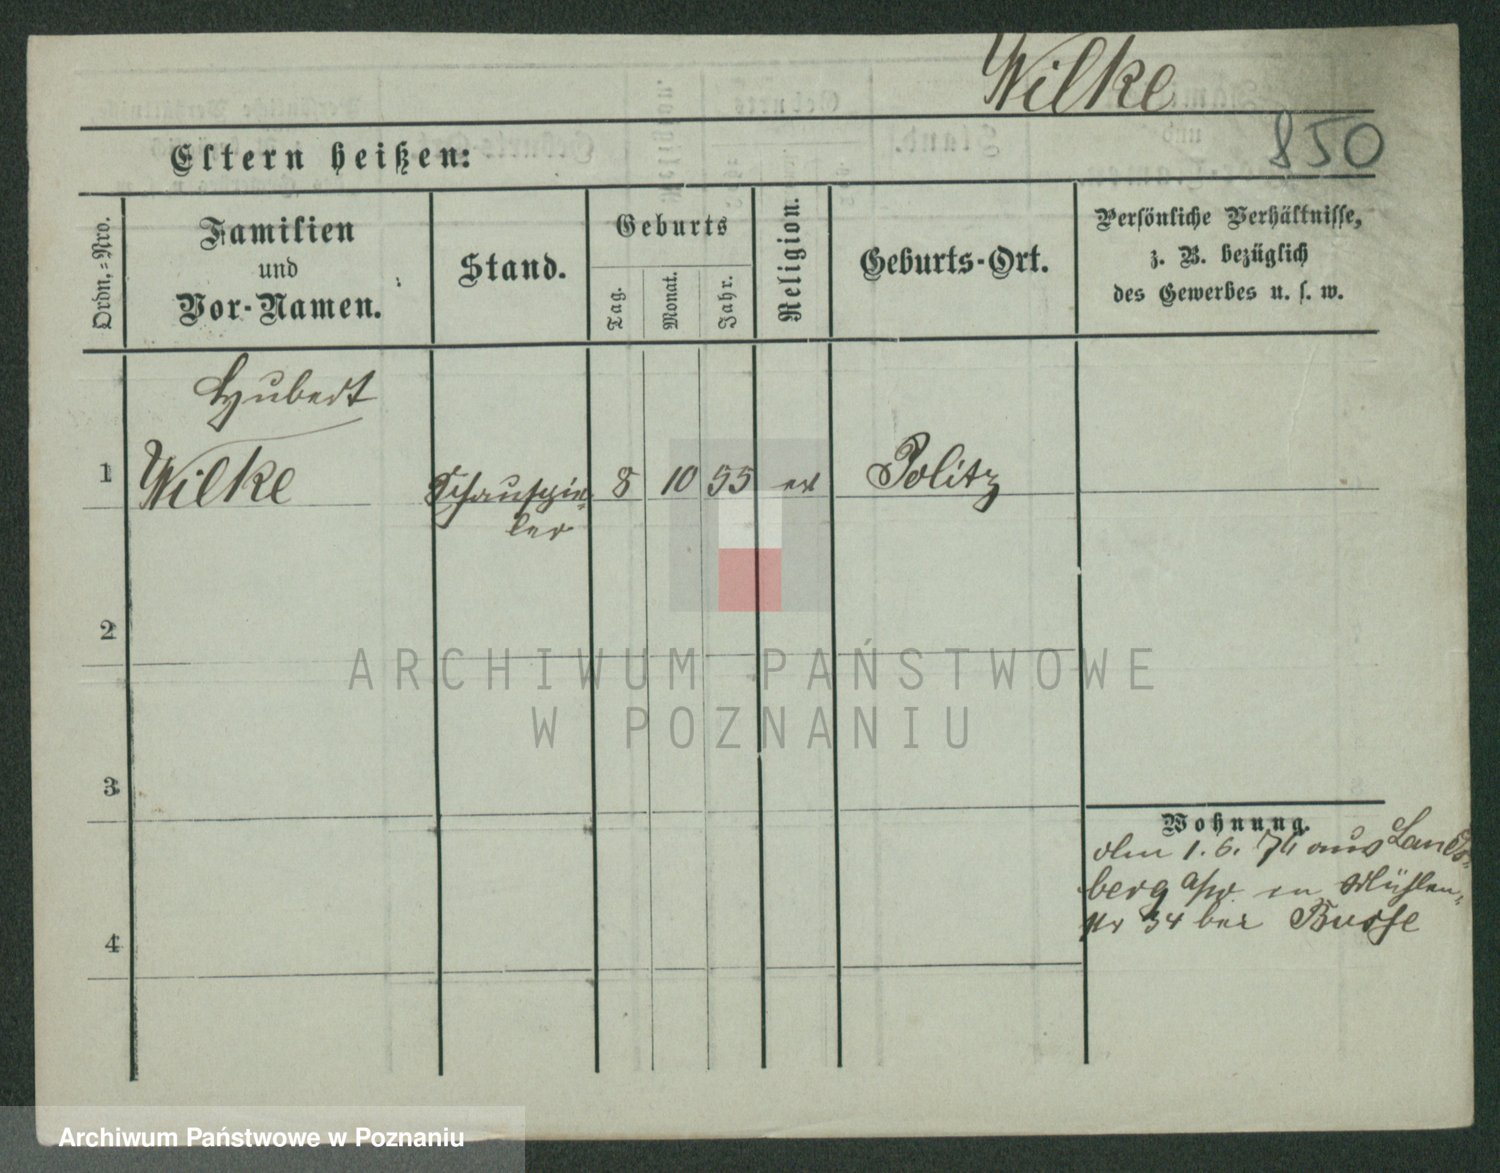 Wilke
850
Eltern heißen:
Ordn.-Nro.
Familien
und
Vor-Namen.
Stand.
Geburts
Tag.
Monat.
Jahr.
Religion.
Geburts-Ort.
Persönliche Verhältnisse,
z. B. bezüglich
des Gewerbes u. s. w.
Hubert
1 Wilke Schauspie- 8 10 55 ev Politz
ler
2
3
4
Wohnung.
1. 6. 74 aus Lands-
berg a/w in Mühlen-
str 34 bei Busse
ARCHIWUM PAŃSTWOWE
W POZNANIU
Archiwum Państwowe w Poznaniu